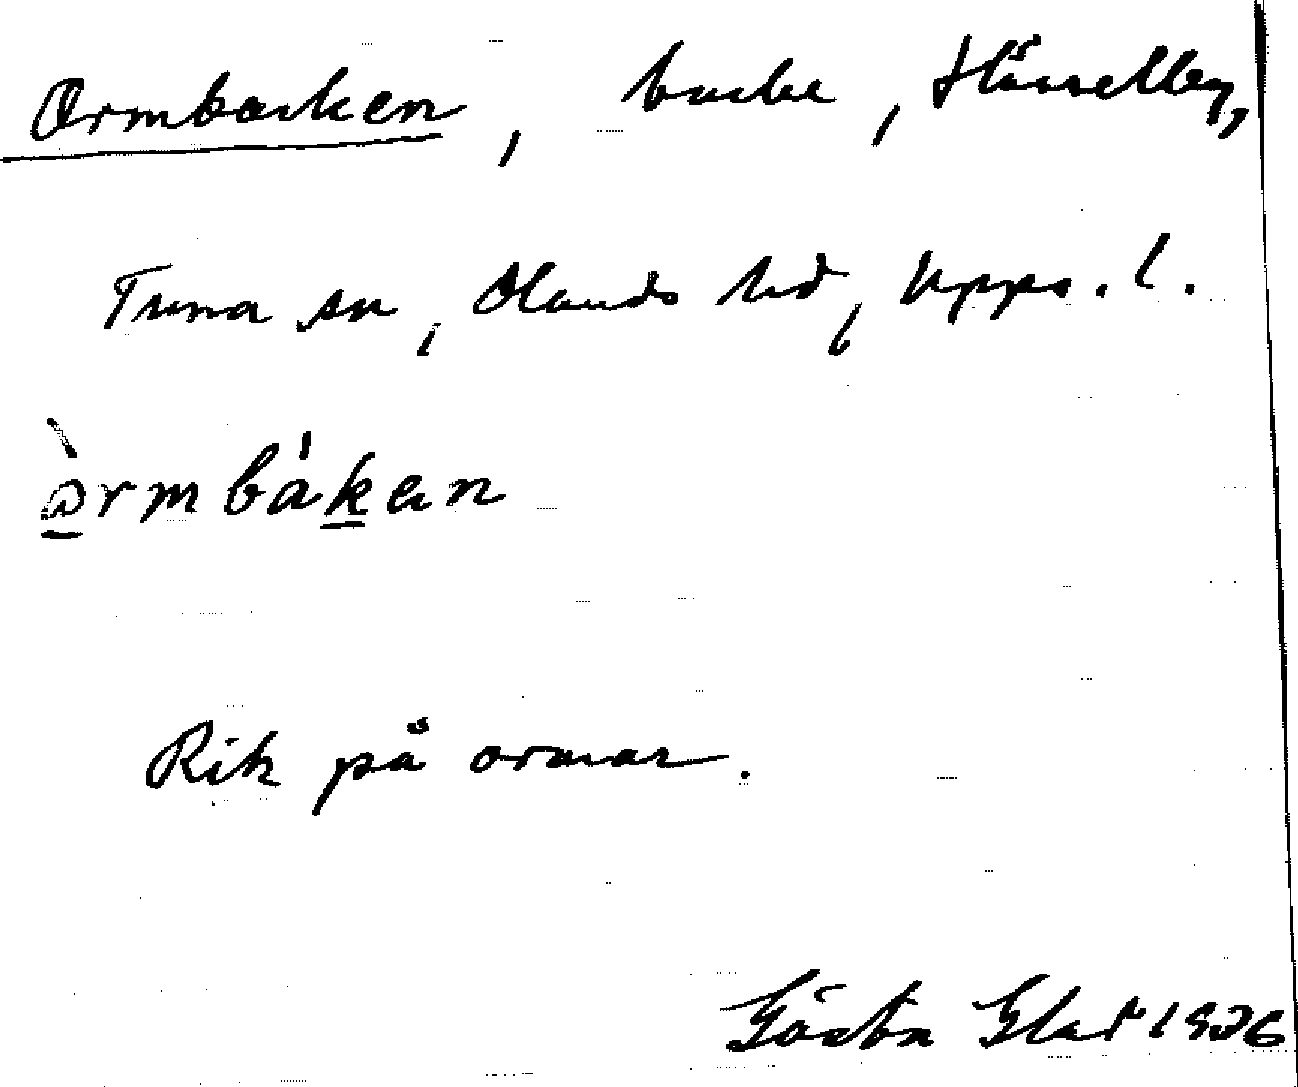 Ormbacken, backe, Hässelby,
Tuna sn, Olands hd, Upps. l.
òrmbákan
Rik på ormar.
Gösta Glad 1936